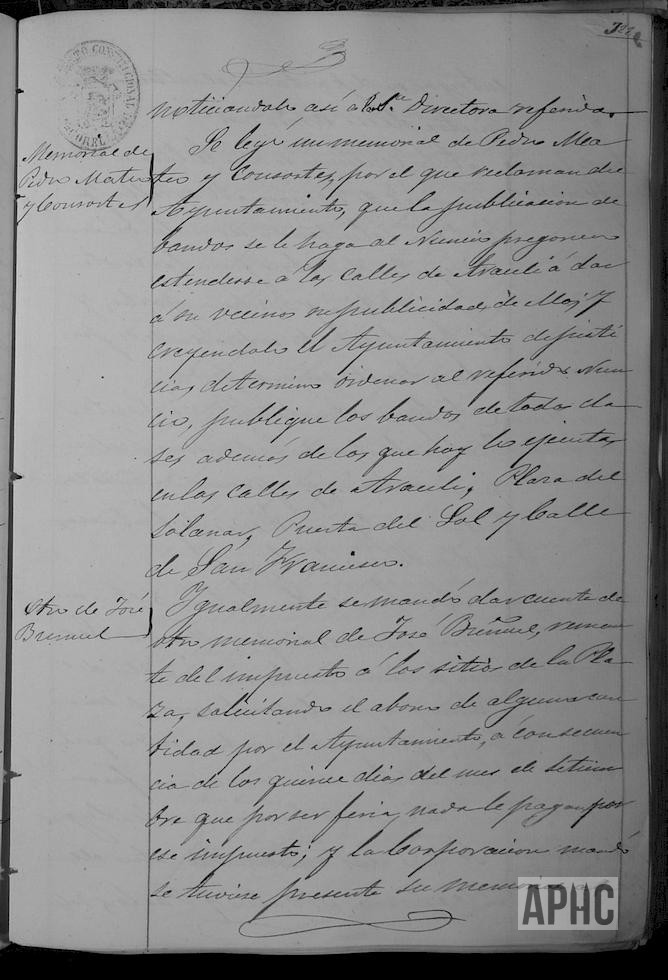 noticiandole así a la Sra. Directora referida.
Memorial de
Pedro Mateo
y Consortes
Se leyó un memorial de Pedro Ma-
teo y Consortes, por el que reclaman del
Ayuntamiento, que la publicacion de
bandos se le haga al Nuncio pregonero
estenderse á las calles de Araceli á dar
á su vecinos publicidad de
creyendolo el Ayuntamiento de justi
cias determinó ordenar al referido Nun-
cio, publique los bandos de todas cla-
ses además de los que hoy lo ejecuta
en las calles de Araceli, Plaza del
Solanar, Puerta del Sol y Calle
de San Francisco.
Otro de José
Brumel
Igualmente se mandó dar cuenta de
otro memorial de José Brumel, reman
te del impuesto á los sitios de la Pla-
za, solicitando el abono de alguna can
tidad por el Ayuntamiento, á consecuen
cia de los quince dias del mes de Setiem
bre que por ser feria, nada le pagan por
ese impuesto; y la Corporacion mandó
se tuviese presente su memorial
APHC